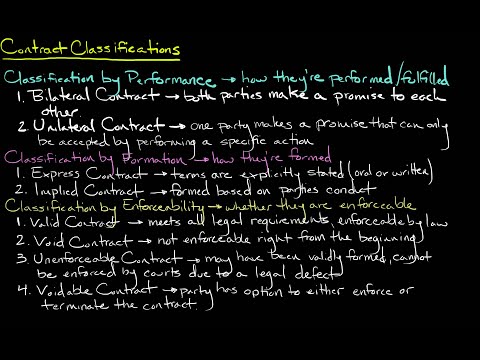 Contract Classifications
Classification by Performance → how they're performed/fulfilled
1. Bilateral Contract → both parties make a promise to each
other.
2. Unilateral Contract → one party makes a promise that can only
be accepted by performing a specific action
Classification by Formation → how they're formed
1. Express Contract → terms are explicitly stated (oral or written)
2. Implied Contract → formed based on parties conduct
Classification by Enforceability → whether they are enforceable
1. Valid Contract → meets all legal requirements, enforceable by law
2. Void Contract → not enforceable right from the beginning
3. Unenforceable Contract → may have been validly formed, cannot
be enforced by courts due to a legal defect
4. Voidable Contract → party has option to either enforce or
terminate the contract.